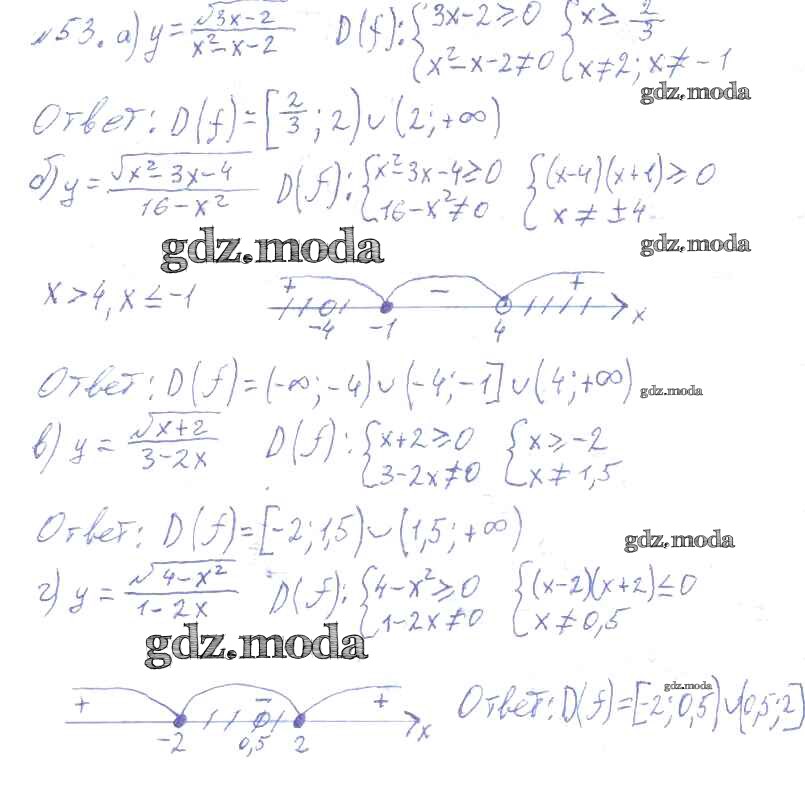 №53. а) y = √(3x-2) / (x²-x-2)   D(f): { 3x-2 ≥ 0   { x ≥ 2/3
x²-x-2 ≠ 0   x ≠ 2; x ≠ -1
gdz.moda
Ответ: D(f) = [2/3; 2) ∪ (2; +∞)
б) y = √(x²-3x-4) / (16-x²)   D(f): { x²-3x-4 ≥ 0   { (x-4)(x+1) ≥ 0
16-x² ≠ 0   x ≠ ±4
gdz.moda gdz.moda
x > 4, x ≤ -1   + − + x
-4 -1 4
Ответ: D(f) = (-∞; -4) ∪ (-4; -1] ∪ (4; +∞) gdz.moda
в) y = √(x+2) / (3-2x)   D(f): { x+2 ≥ 0   { x ≥ -2
3-2x ≠ 0   x ≠ 1,5
Ответ: D(f) = [-2; 1,5) ∪ (1,5; +∞)
gdz.moda
г) y = √(4-x²) / (1-2x)   D(f): { 4-x² ≥ 0   { (x-2)(x+2) ≤ 0
1-2x ≠ 0   x ≠ 0,5
gdz.moda
gdz.moda
+ − + x   Ответ: D(f) = [-2; 0,5) ∪ (0,5; 2]
-2 0,5 2